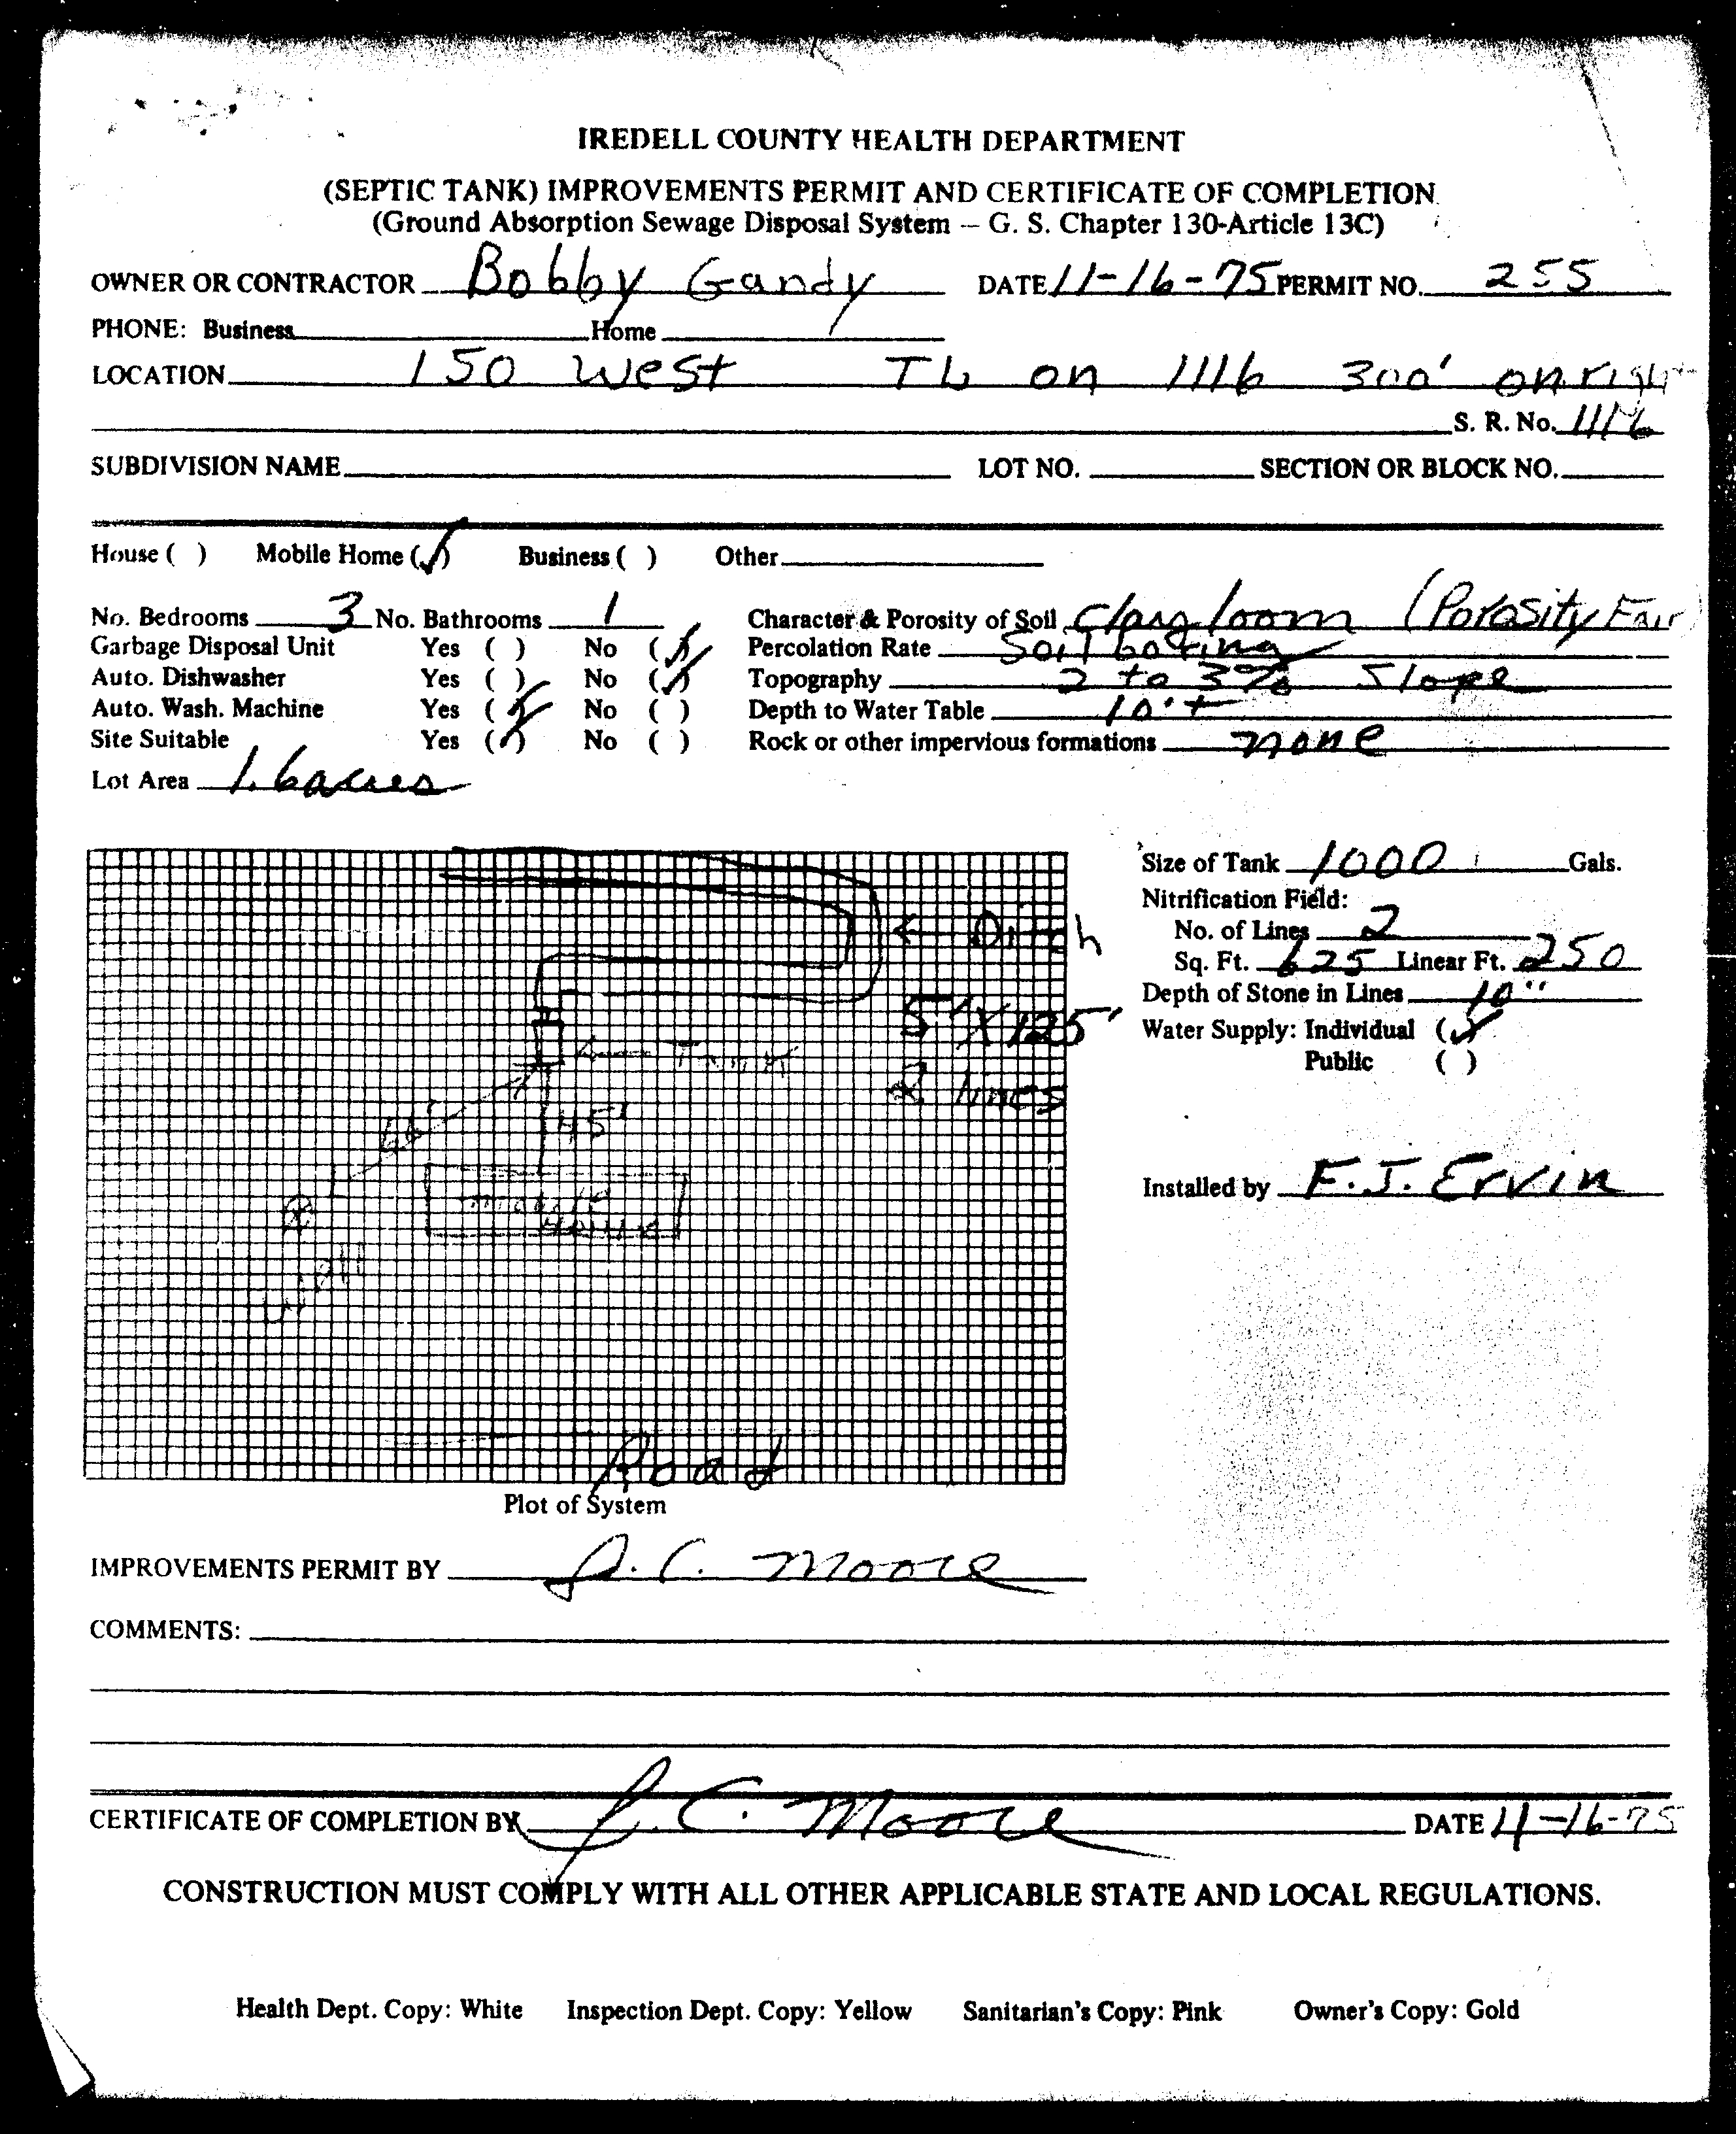 IREDELL COUNTY HEALTH DEPARTMENT
(SEPTIC TANK) IMPROVEMENTS PERMIT AND CERTIFICATE OF COMPLETION
(Ground Absorption Sewage Disposal System – G. S. Chapter 130-Article 13C)
OWNER OR CONTRACTOR Bobby Gandy DATE 11-16-75 PERMIT NO. 255
PHONE: Business Home
LOCATION 150 West TL on 1116 300' on right
S. R. No. 1116
SUBDIVISION NAME LOT NO. SECTION OR BLOCK NO.
House ( ) Mobile Home (✓) Business ( ) Other
No. Bedrooms 3 No. Bathrooms 1 Character & Porosity of Soil Clay loom (Porosity Fair)
Garbage Disposal Unit Yes ( ) No (✓) Percolation Rate Soil boring
Auto. Dishwasher Yes ( ) No (✓) Topography 2 to 3% Slope
Auto. Wash. Machine Yes (✓) No ( ) Depth to Water Table 10'+
Site Suitable Yes (✓) No ( ) Rock or other impervious formations none
Lot Area 1.6 acres
Size of Tank 1000 Gals.
Nitrification Field:
No. of Lines 2
Sq. Ft. 625 Linear Ft. 250
Depth of Stone in Lines 10"
Water Supply: Individual (✓)
Public ( )
← Ditch
5' X 125'
2 lines
← Tank
45'
Mobile
Home
Well
Installed by F.J. Ervin
Road
Plot of System
IMPROVEMENTS PERMIT BY J.C. Moore
COMMENTS:
CERTIFICATE OF COMPLETION BY J.C. Moore DATE 11-16-75
CONSTRUCTION MUST COMPLY WITH ALL OTHER APPLICABLE STATE AND LOCAL REGULATIONS.
Health Dept. Copy: White Inspection Dept. Copy: Yellow Sanitarian's Copy: Pink Owner's Copy: Gold